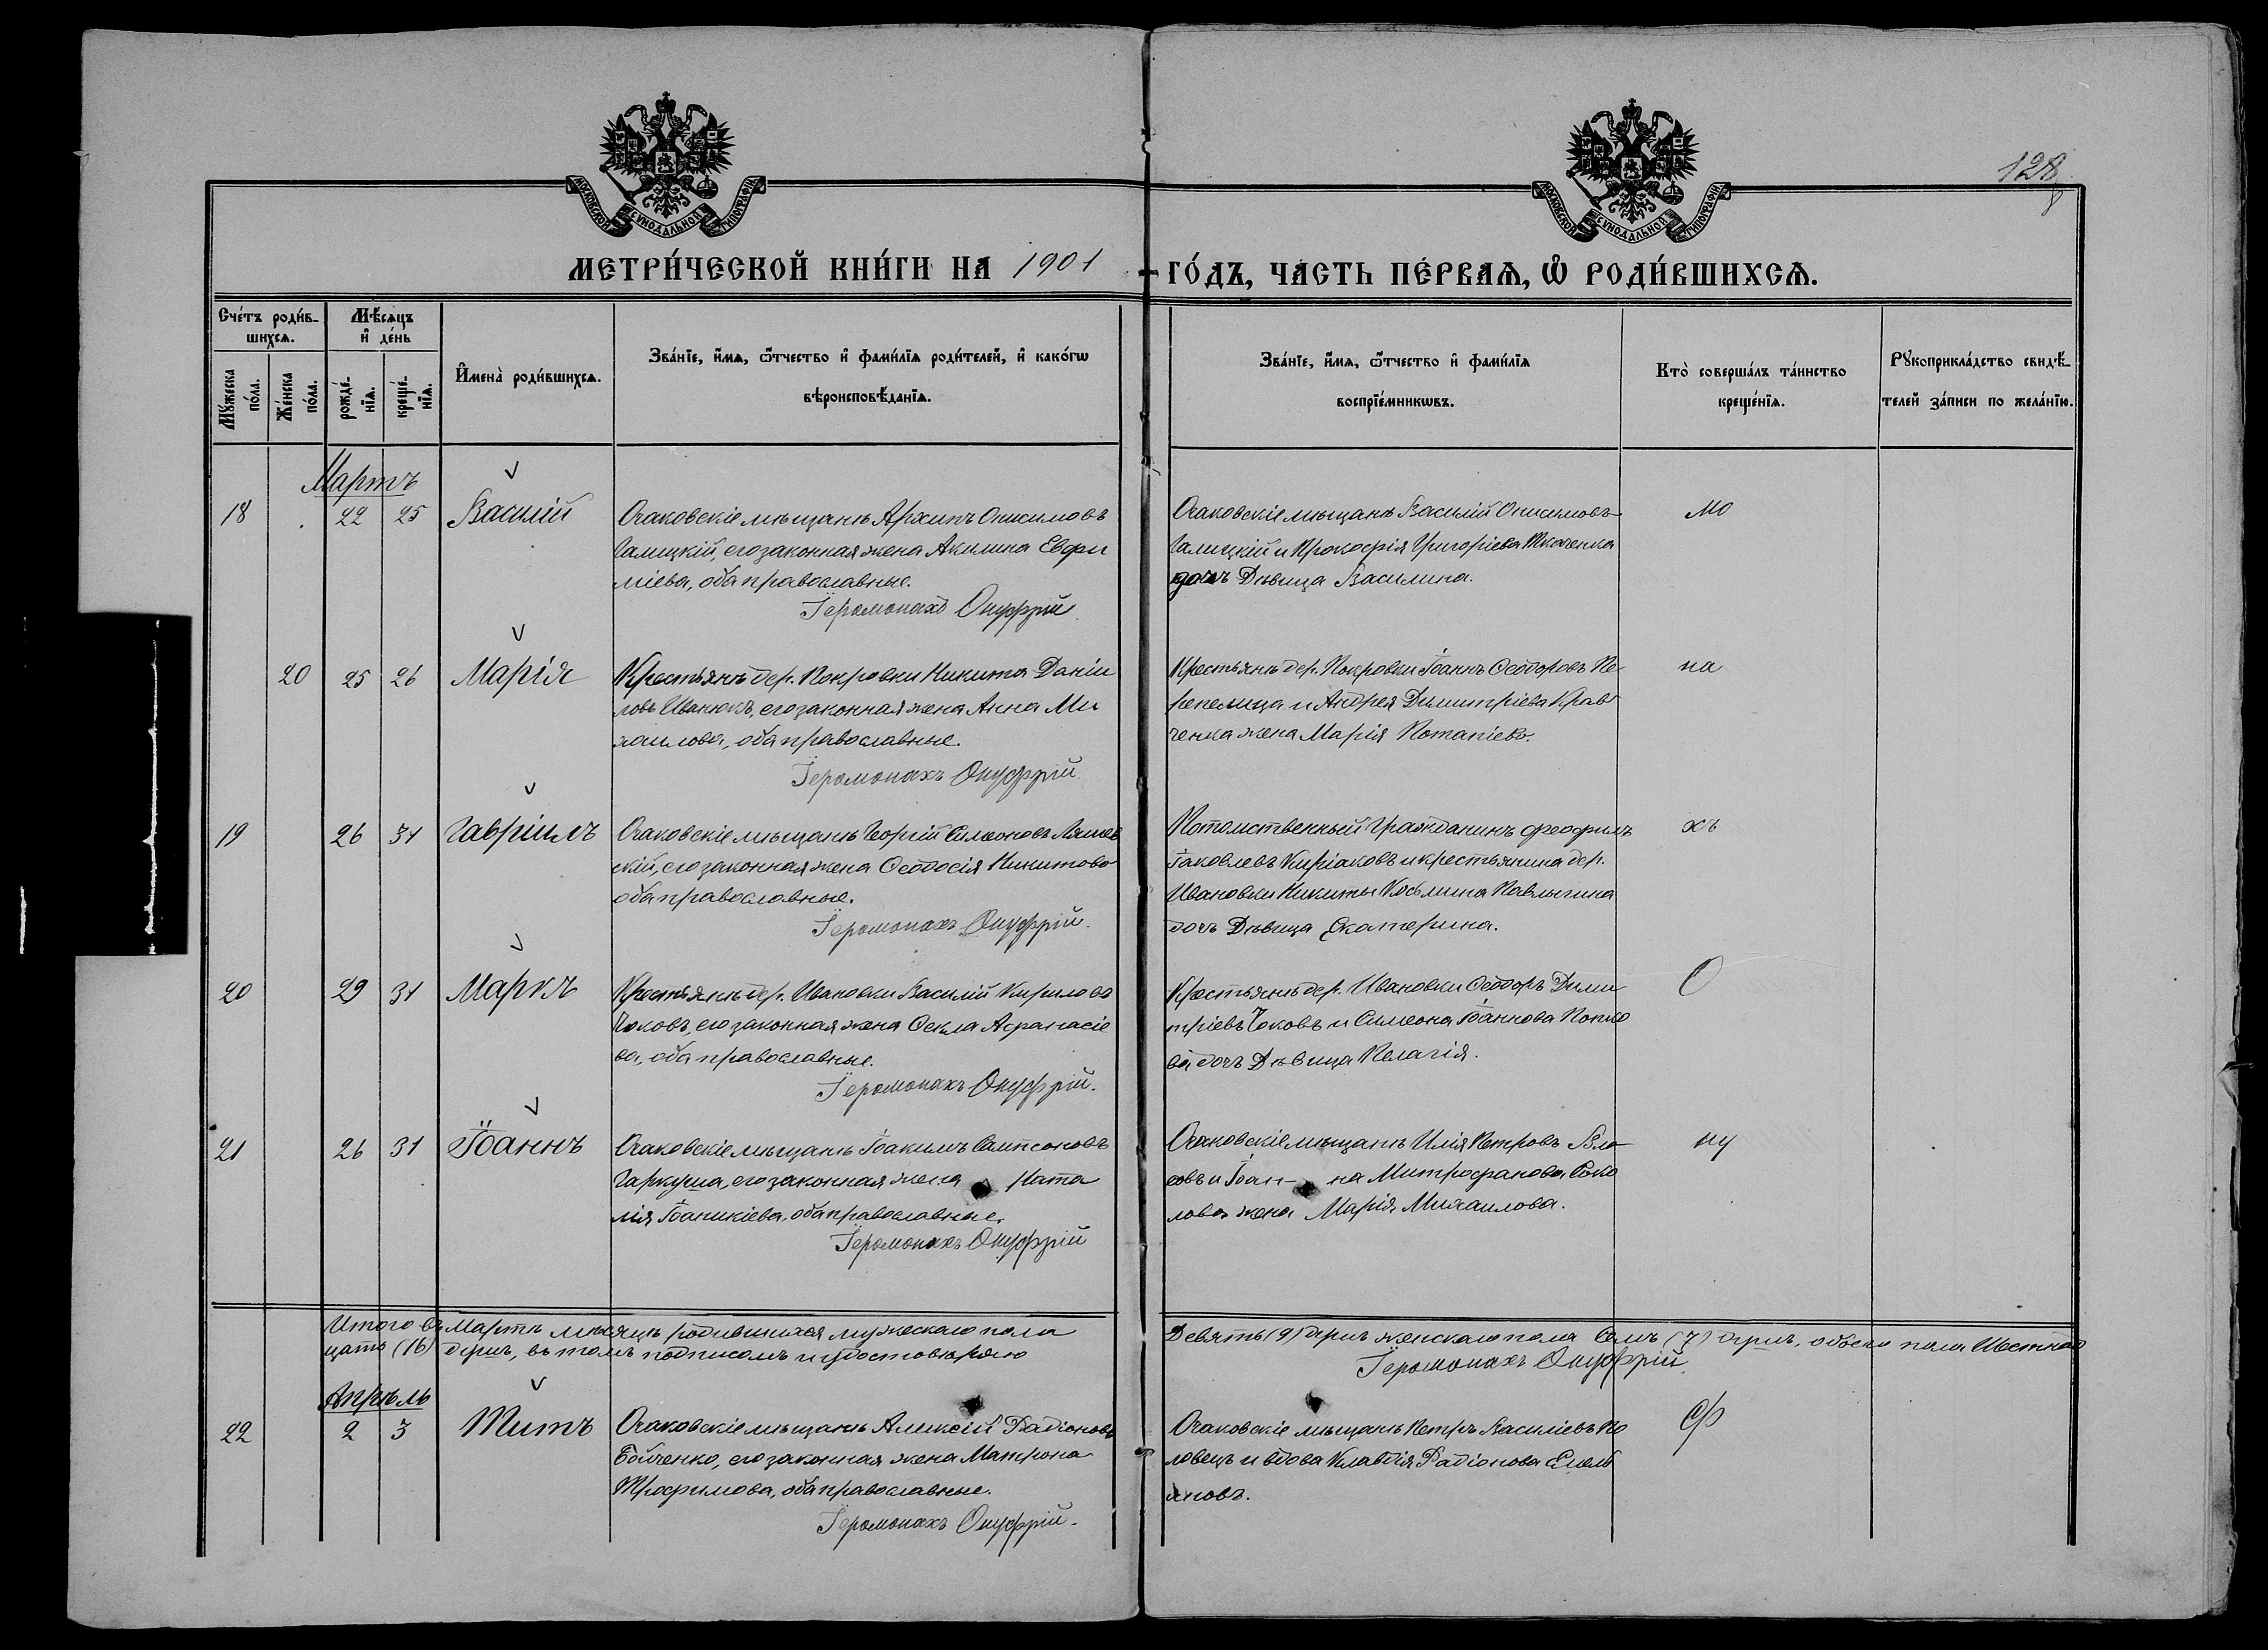 128
МОСКОВСКОЙ СУНОДАЛЬНОЙ ТИПОГРАФІИ
МОСКОВСКОЙ СУНОДАЛЬНОЙ ТИПОГРАФІИ
МЕТРИ́ЧЕСКОЙ КНИ́ГИ НА 1901 ГО́ДЪ, ЧА́СТЬ ПЕ́РВАѦ, Ѽ РОДИ́ВШИХСѦ.
Сче́тъ роди́в-
шихсѧ.
Мѣ́сѧцъ
и҆ де́нь
Мꙋ́жеска
по́ла.
Же́нска
по́ла.
рожде́-
нїѧ.
креще́-
нїѧ.
И҆мена̀ роди́вшихсѧ.
Зва́нїе, и҆́мѧ, ѻ҆́тчество и҆ фами́лїѧ роди́телей, и҆ како́гѡ
вѣроисповѣ́данїѧ.
Зва́нїе, и҆́мѧ, ѻ҆́тчество и҆ фами́лїѧ
воспрїе́мникѡвъ.
Кто̀ соверша́лъ та́инство
креще́нїѧ.
Рꙋкоприкла́дство свидѣ́-
телей за́писи по жела́нїю.
Мартъ
18 22 25 Василій
Очаковскіе мѣщанѣ Архипъ Онисимовъ
Галицкій, его законная жена Акилина Евфи
міева, оба православные.
Іеромонахъ Онуфрій
Очаковскіе мѣщанѣ Василій Онисимовъ
Галицкій и Прокофія Григоріева Ткаченка
дочь Дѣвица Василина.
Мо
20 25 26 Марія
Крестьянѣ дер. Покровки Никита Даніи
ловъ Иванюкъ, его законная жена Анна Ми
хаилова, оба православные.
Іеромонахъ Онуфрій
Крестьянѣ дер. Покровки Іоаннъ Ѳеодоровъ Пе-
репелица и Андрея Димитріева Крав
ченка жена Марія Потапіева.
на
19 26 31 Гавріилъ
Очаковскіе мѣщанѣ Георгій Симеоновъ
скій, его законная жена Ѳеодосія Никитова
оба православные.
Іеромонахъ Онуфрій.
Потомственный Гражданинъ Феофилъ
Іаковлевъ Киріаковъ и крестьянина дер.
Ивановки Никиты Косьмина Павлычина
дочь Дѣвица Екатерина.
хъ
20 29 31 Маркъ
Крестьянѣ дер. Ивановки Василій Кирилловъ
Чоковъ, его законная жена Ѳекла Афанасіе
ва, оба православные.
Іеромонахъ Онуфрій.
Крестьянѣ дер. Ивановки Ѳеодоръ Дими-
тріевъ Чоковъ и Симеона Іоаннова Попко
ва дочь Дѣвица Пелагія.
О
21 26 31 Іоаннъ
Очаковскіе мѣщанѣ Іоакимъ Сампсоновъ
Гаркуша, его законная жена Ната
лія Іоаникіева, оба православные.
Іеромонахъ Онуфрій
Очаковскіе мѣщанѣ Илія Петровъ Вла-
совъ и Іоан- на Митрофанова Соко
лова жена Марія Михаилова.
ну
Итого въ Мартѣ мѣсяцѣ родившихся мужескаго пола Девять (9) душъ женскаго пола Семь (7) душъ, обоего пола Шестнад
цать (16) душъ, въ томъ подписомъ и удостовѣряю
Іеромонахъ Онуфрій.
Апрѣль
22 2 3 Титъ
Очаковскіе мѣщанѣ Алексій Радіоновъ
Бойченко, его законная жена Матрона
Трофимова, оба православные.
Іеромонахъ Онуфрій.
Очаковскіе мѣщанѣ Петръ Василіевъ По
ловецъ и вдова Клавдія Радіонова Емель
янова.
ф